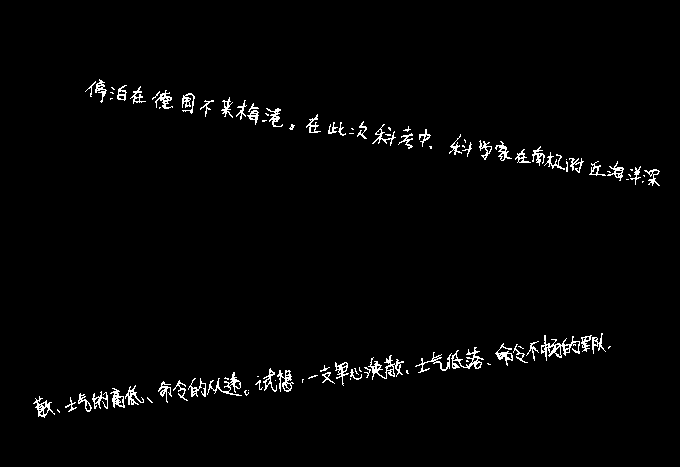 停泊在德国不莱梅港。在此次科考中，科学家在南极附近海洋深
散、士气的高低、命令的从违。试想，一支军心涣散、士气低落、命令不畅的军队，